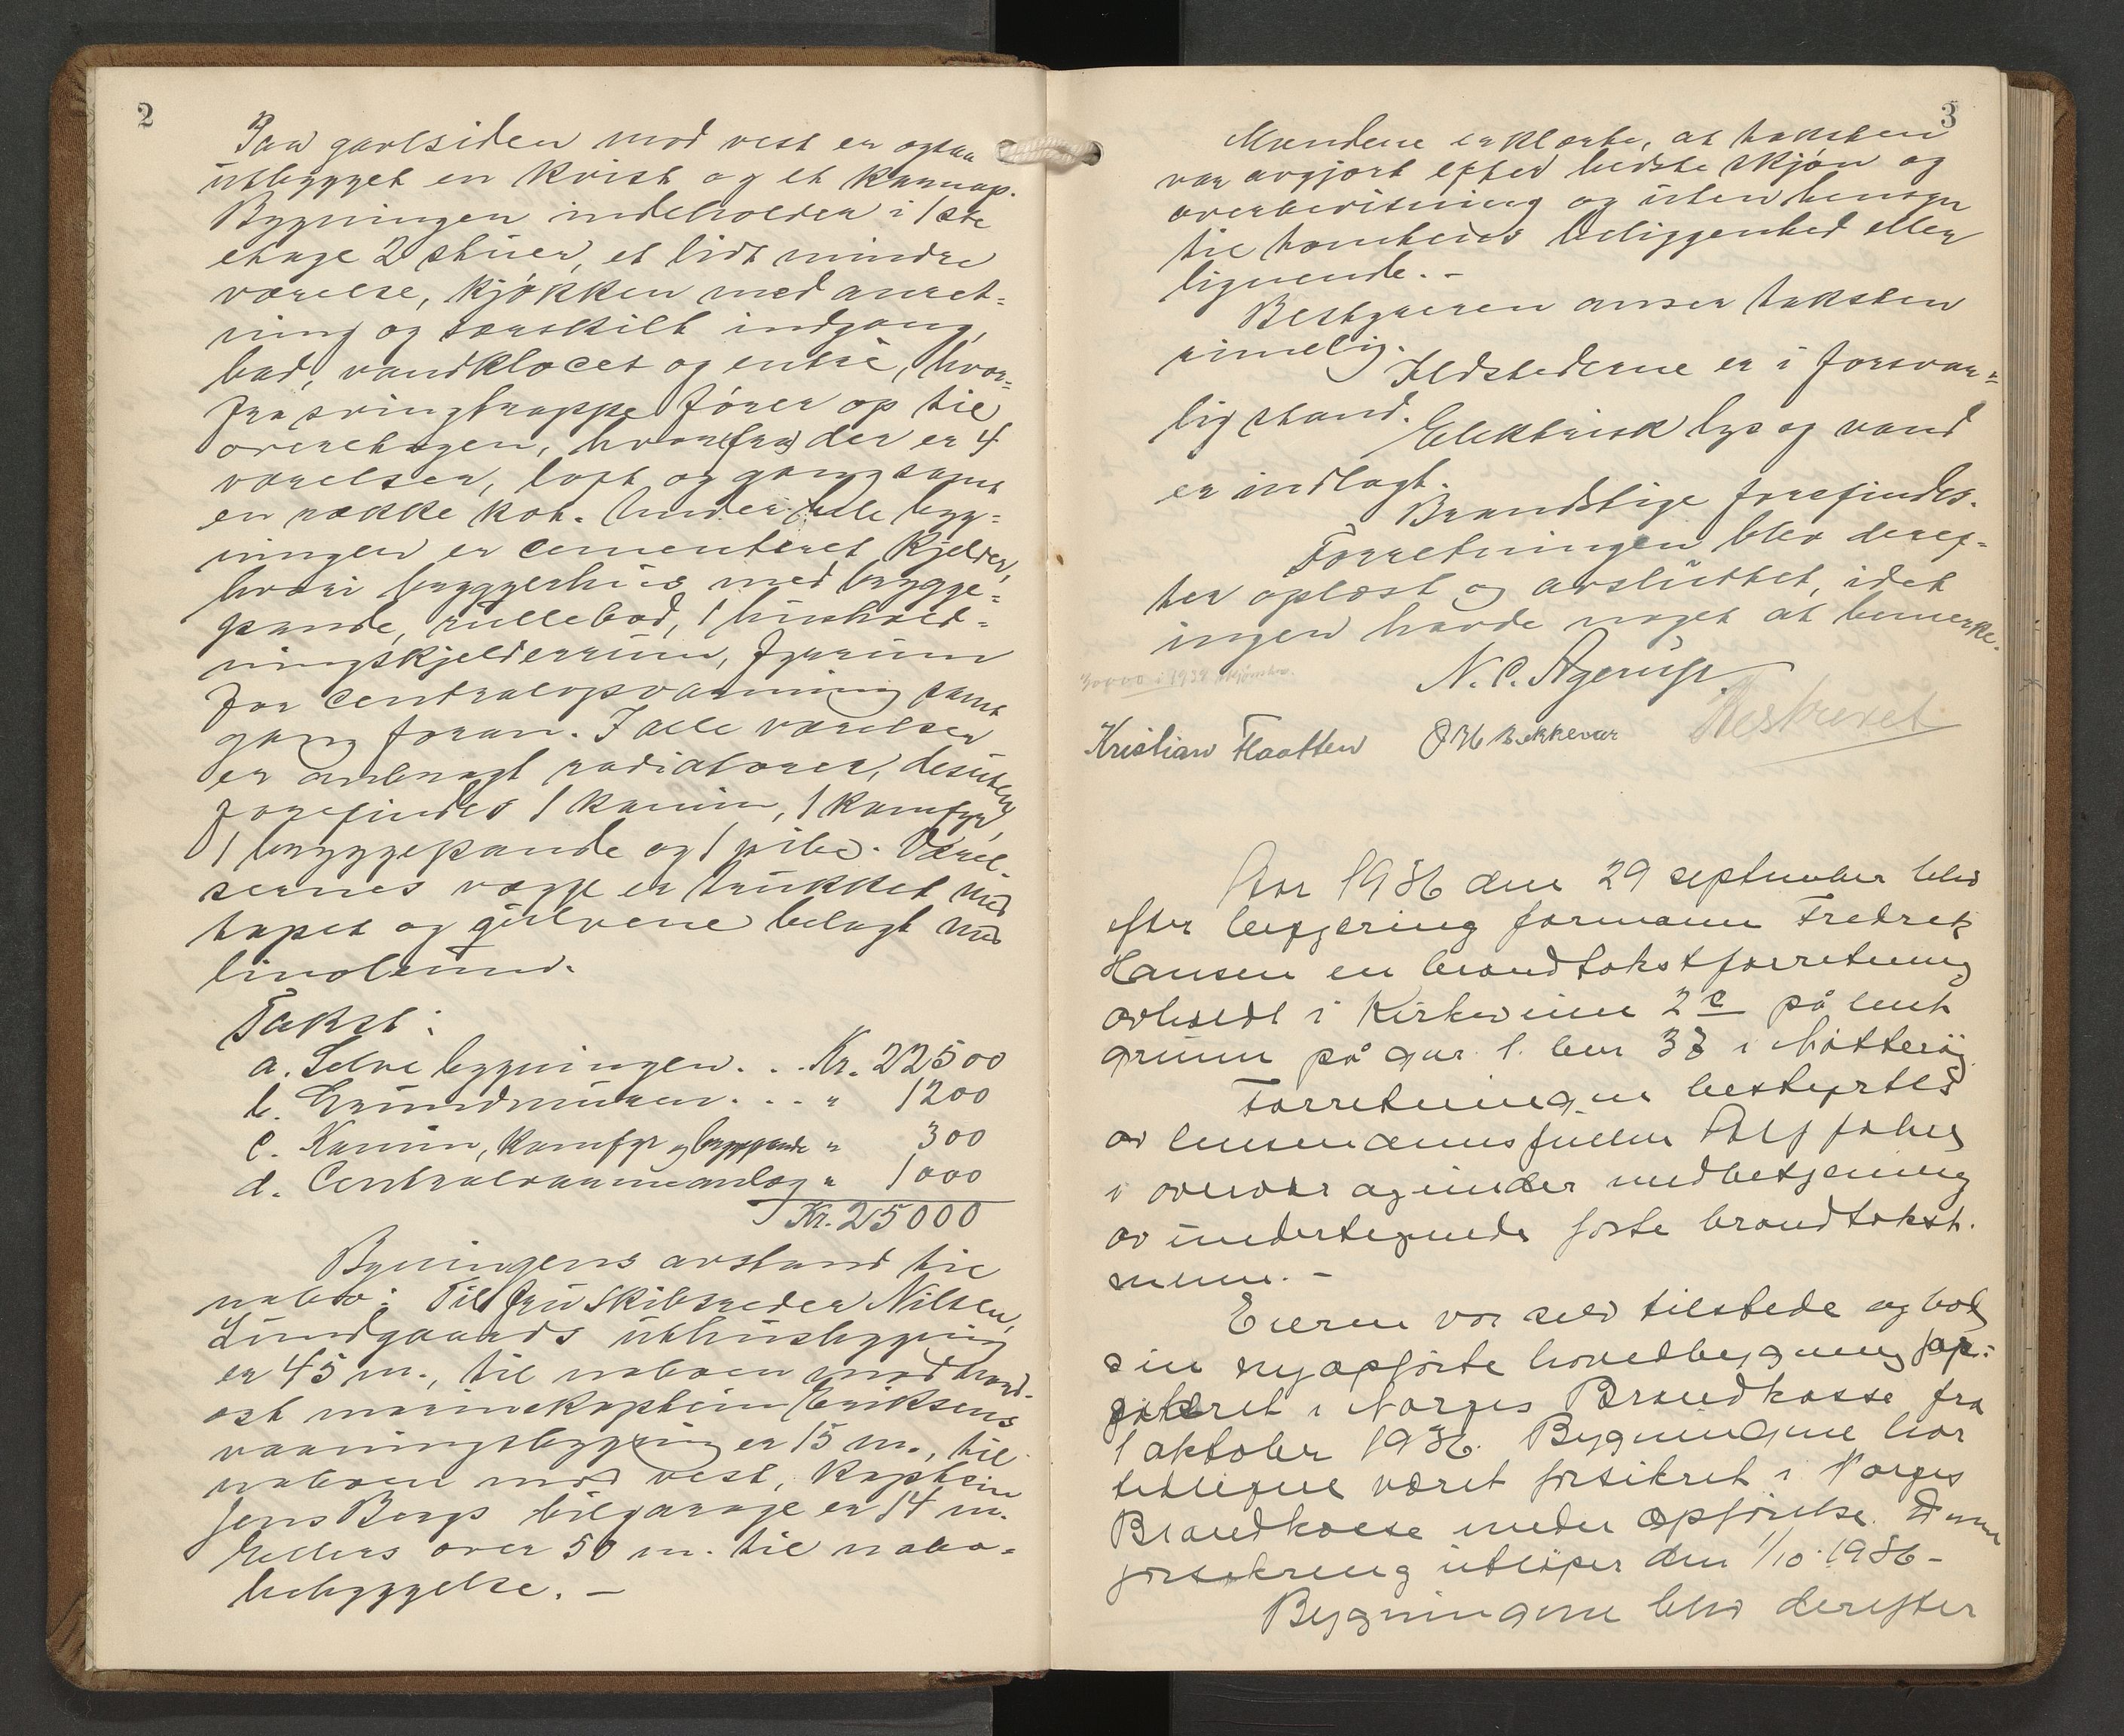 2
Paa gavlsiden mod vest er ogsaa
utbygget en kvist og et karnap.
Bygningen indeholder i 1ste
etage 2 stuer, et lidt mindre
værelse, kjøkken med anret-
ning og særskilt indgang,
bad, vandklocet og entré, hvor-
fra svingtrappe fører op til
overetagen, hvor(fra) der er 4
værelser, loft og gang samt
en række kot. Under hele byg-
ningen er cementeret kjelder,
hvori bryggerhus med brygge-
pande, rullebod, 1 hushold-
ningskjelderrum, fyrrum
for centralopvarming samt
gang foran. I alle værelser
er anbragt radiatorer, desuten
forefindes 1 kamin, 1 komfyr,
1 bryggepande og 1 pibe. Værel-
sernes vægge er trukket med
tapet og gulvene belagt med
linoleum.
Takst:
a. Selve bygningen. . . Kr. 22500
b. Grundmuren. . . . " 1200
c. Kamin, komfyr og bryggepande " 300
d. Centralvarmeanlæg " 1000
Kr. 25000
Bygningens avstand til
nabo: Til fru skibsreder Nilsen,
Lundgaards uthusbygning
er 45 m., til naboen mod nord-
ost marinekaptein Eriksens
vaaningsbygning er 15 m., til
naboen mod vest, kaptein
Jens Bergs bilgarage er 14 m.
Ellers over 50 m. til nabo-
bebyggelse. -
3
Mændene erklærte, at taksten
var avgjort efter bedste skjøn og
overbevisning og uten hensyn
til tomtens beliggenhed eller
lignende. -
Bestyreren anser taksten
rimelig.
Ildstederne er i forsvar-
lig stand.
Elektrisk lys og vand
er indlagt.
Brandstige forefindes.
Forretningen blev deref-
ter oplæst og avsluttet, idet
ingen havde noget at bemerke.
30000 i 1938
N. C. Agerup.
Kristian Flaatten O H Bekkevar Beskrevet
Aar 1936 den 29 september blev
efter begjæring formann Fredrik
Hansen en brandtakstforretning
avholdt i Kirkeveien 2 c på leiet
grunn på gnr. 1. bnr 33 i Nøtterøy.
Forretningen bestyrtes
av lensmannsfullm Alf
i overvær og under medbetjening
av undertegnede faste brandtakst.
menn. -
Eieren var selv tilstede og bad
sin nyopførte hovedbygning for-
sikret i Norges Brandkasse fra
1 oktober 1936. Bygningene har
tidligere været forsikret i Norges
Brandkasse under opførelse. Denne
forsikring utløper den 1/10 1936 -
Bygningene blev derefter